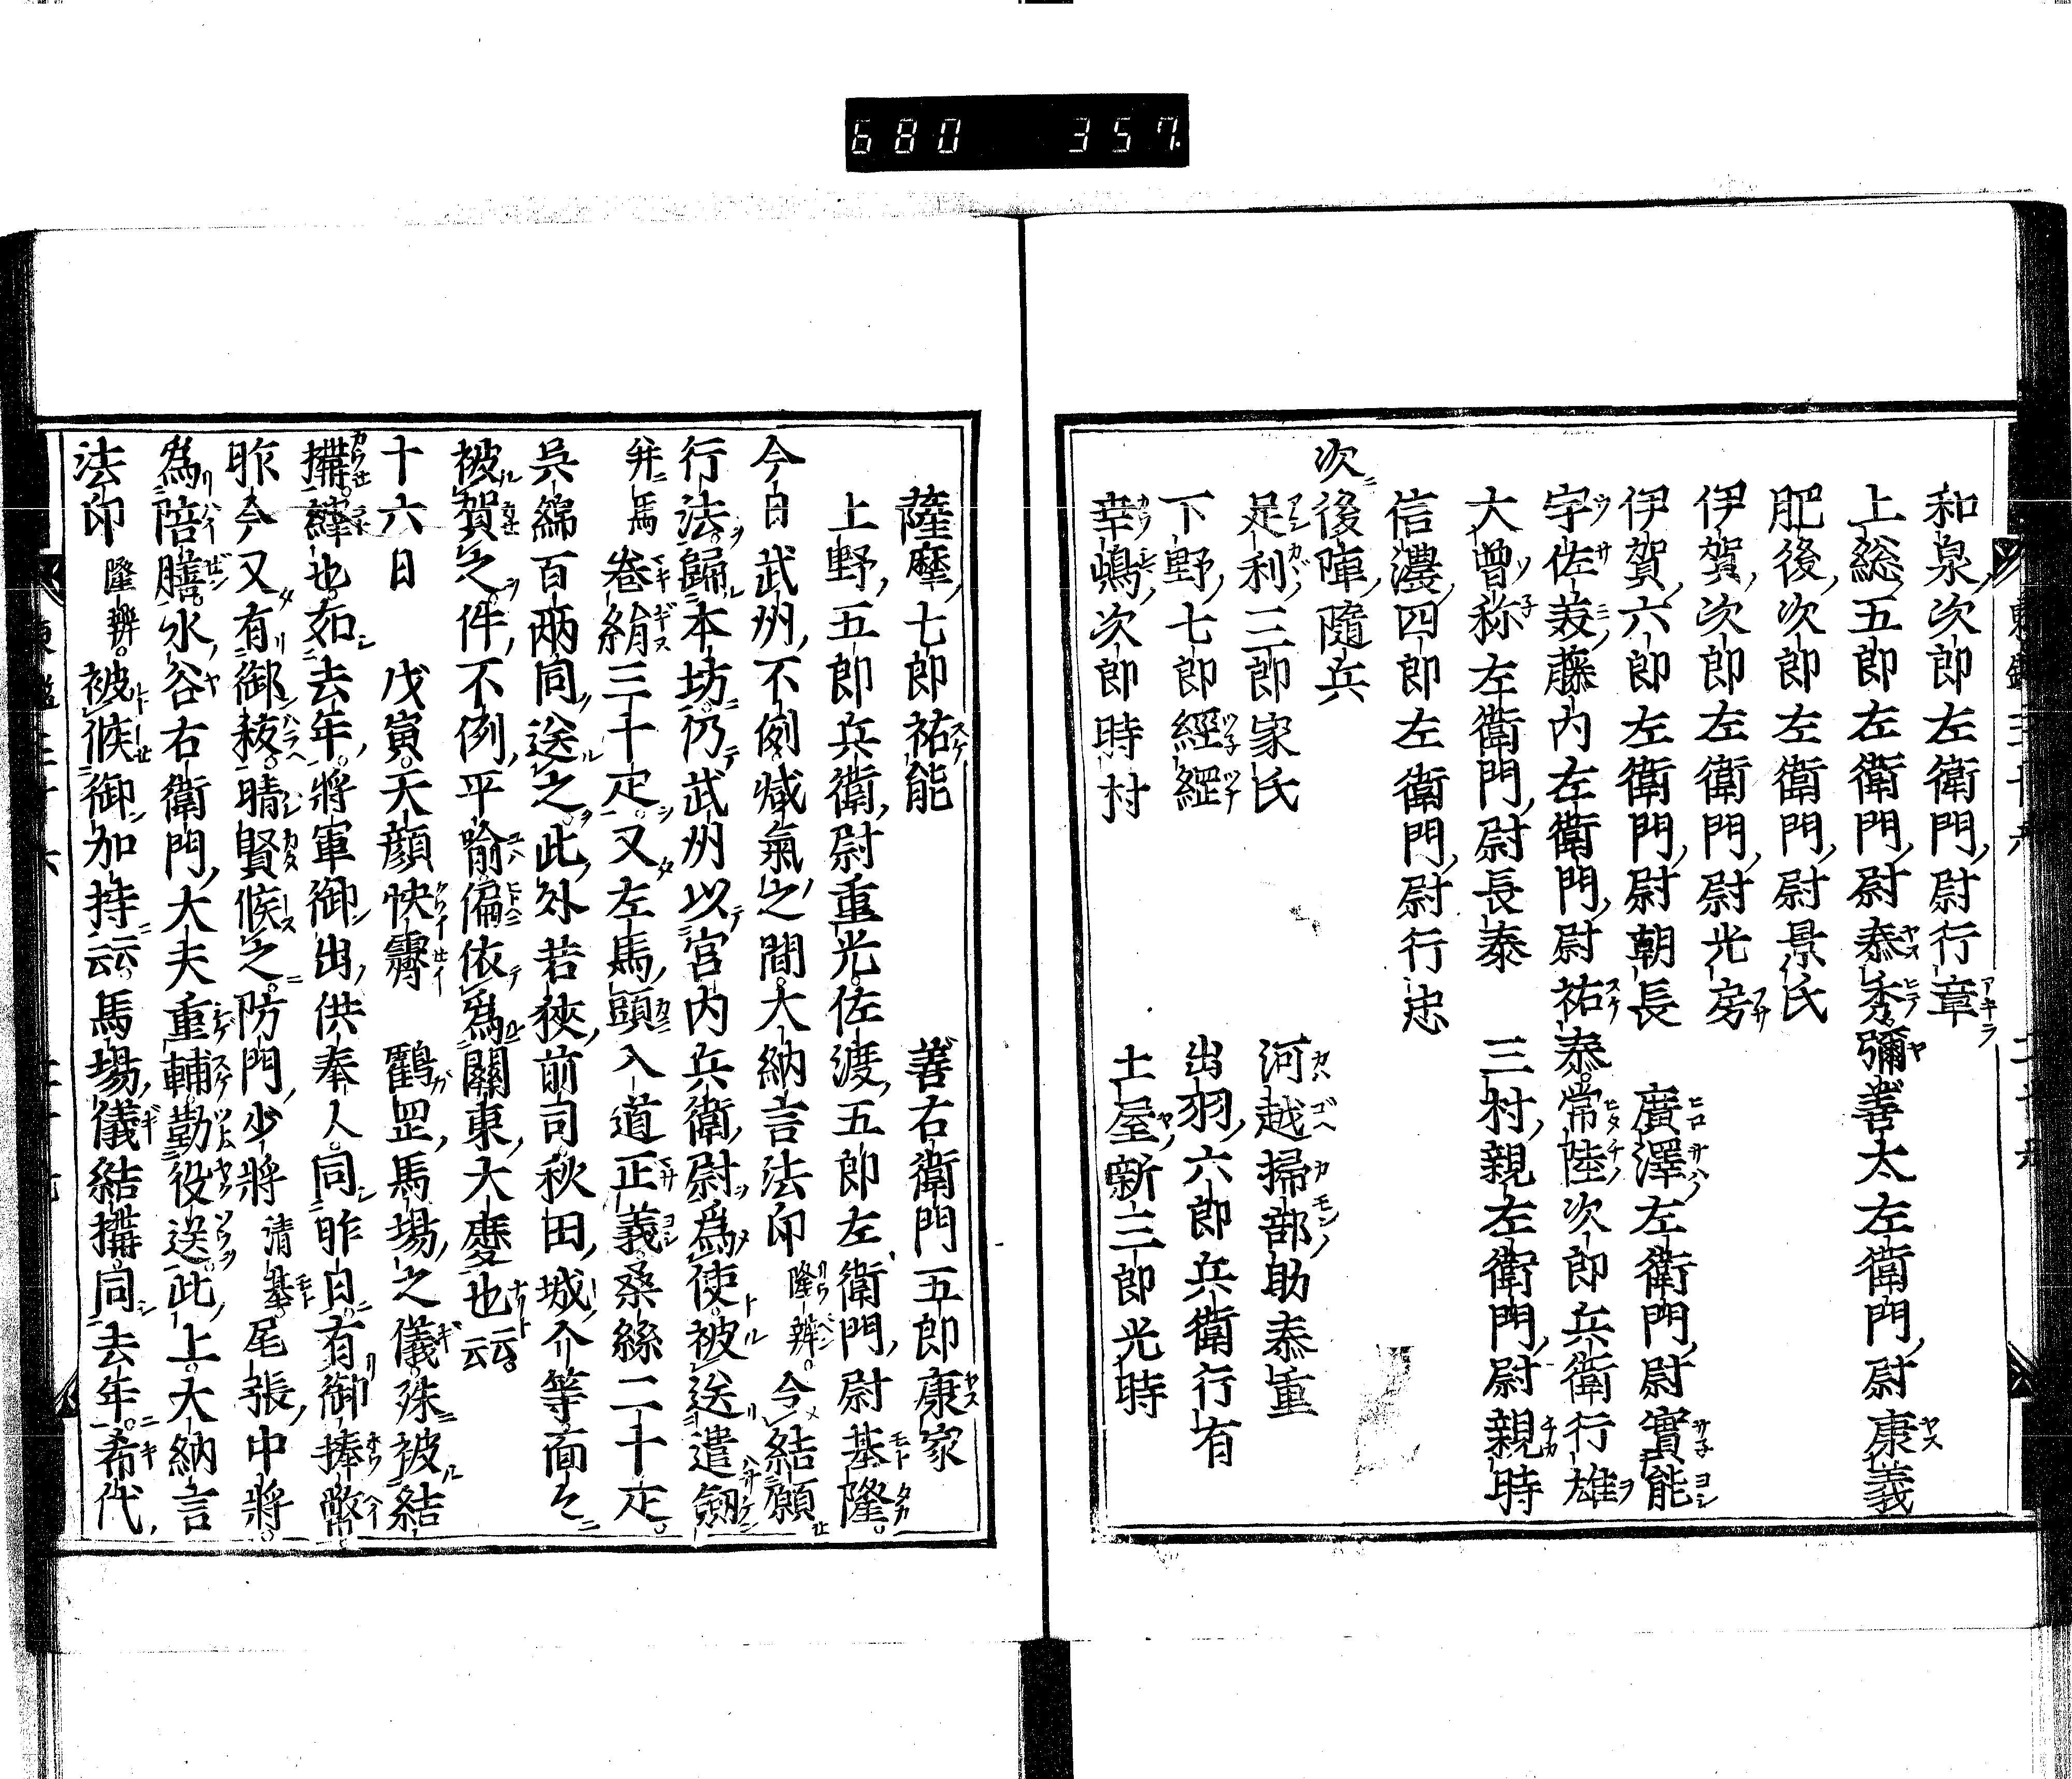 680 357.
和泉次郎左衛門尉行章
上総五郎左衛門尉泰秀 彌善太左衛門尉康義
肥後次郎左衛門尉景氏
伊賀次郎左衛門尉光房
伊賀六郎左衛門尉朝長 廣澤左衛門尉實能
宇佐美藤内左衛門尉祐泰 常陸次郎兵衛行雄
大曽祢左衛門尉長泰 三村親左衛門尉親時
信濃四郎左衛門尉行忠
次後陣隨兵
足利三郎家氏 河越掃部助泰重
下野七郎經經 出羽六郎兵衛行有
幸嶋次郎時村 土屋新三郎光時
薩摩七郎祐能 善右衛門五郎康家
上野五郎兵衛尉重光 佐渡五郎左衛門尉基隆
今日武州不例減氣之間大納言法印隆辨令結願
行法歸本坊仍武州以宮内兵衛尉爲使被送遣劔
并馬卷絹三十疋又左馬頭入道正義桑絲二十疋
呉綿百兩同送之此外若狹前司秋田城介等面々
被賀之件不例平喩偏依爲關東大慶也云云
十六日 戊寅天顔快霽 鶴罡馬場之儀殊被結
搆縡也如去年將軍御出供奉人同昨日有御捧幣
昨今又有御秡晴賢候之防門少將清基尾張中將
為陪膳水谷右衛門大夫重輔勤役送此上大納言
法印隆辨被候御加持云云馬場儀結搆同去年希代